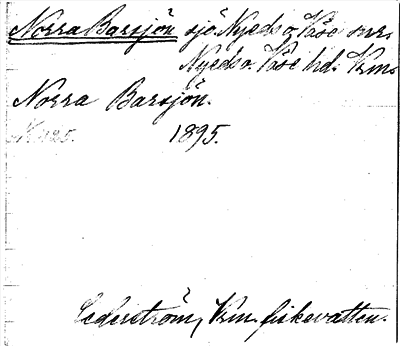 Norra Barsjön sjö. Nyeds o. Väse snr.
Nyeds o. Väse hd. Vrm.
Norra Barsjön.
1895.
Cederström, Vrm. fiskevatten.